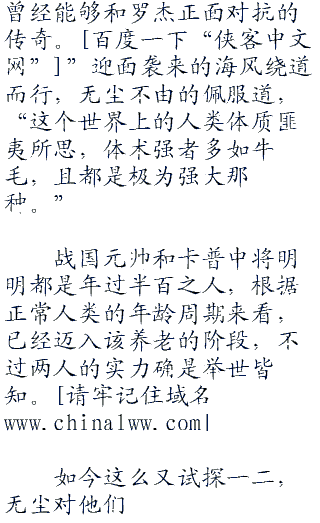 曾经能够和罗杰正面对抗的
传奇。[百度一下“侠客中文
网”]”迎面袭来的海风绕道
而行，无尘不由的佩服道，
“这个世界上的人类体质匪
夷所思，体术强者多如牛
毛，且都是极为强大那
种。”
战国元帅和卡普中将明
明都是年过半百之人，根据
正常人类的年龄周期来看，
已经迈入该养老的阶段，不
过两人的实力确是举世皆
知。[请牢记住域名
www.china1ww.com|
如今这么又试探一二，
无尘对他们